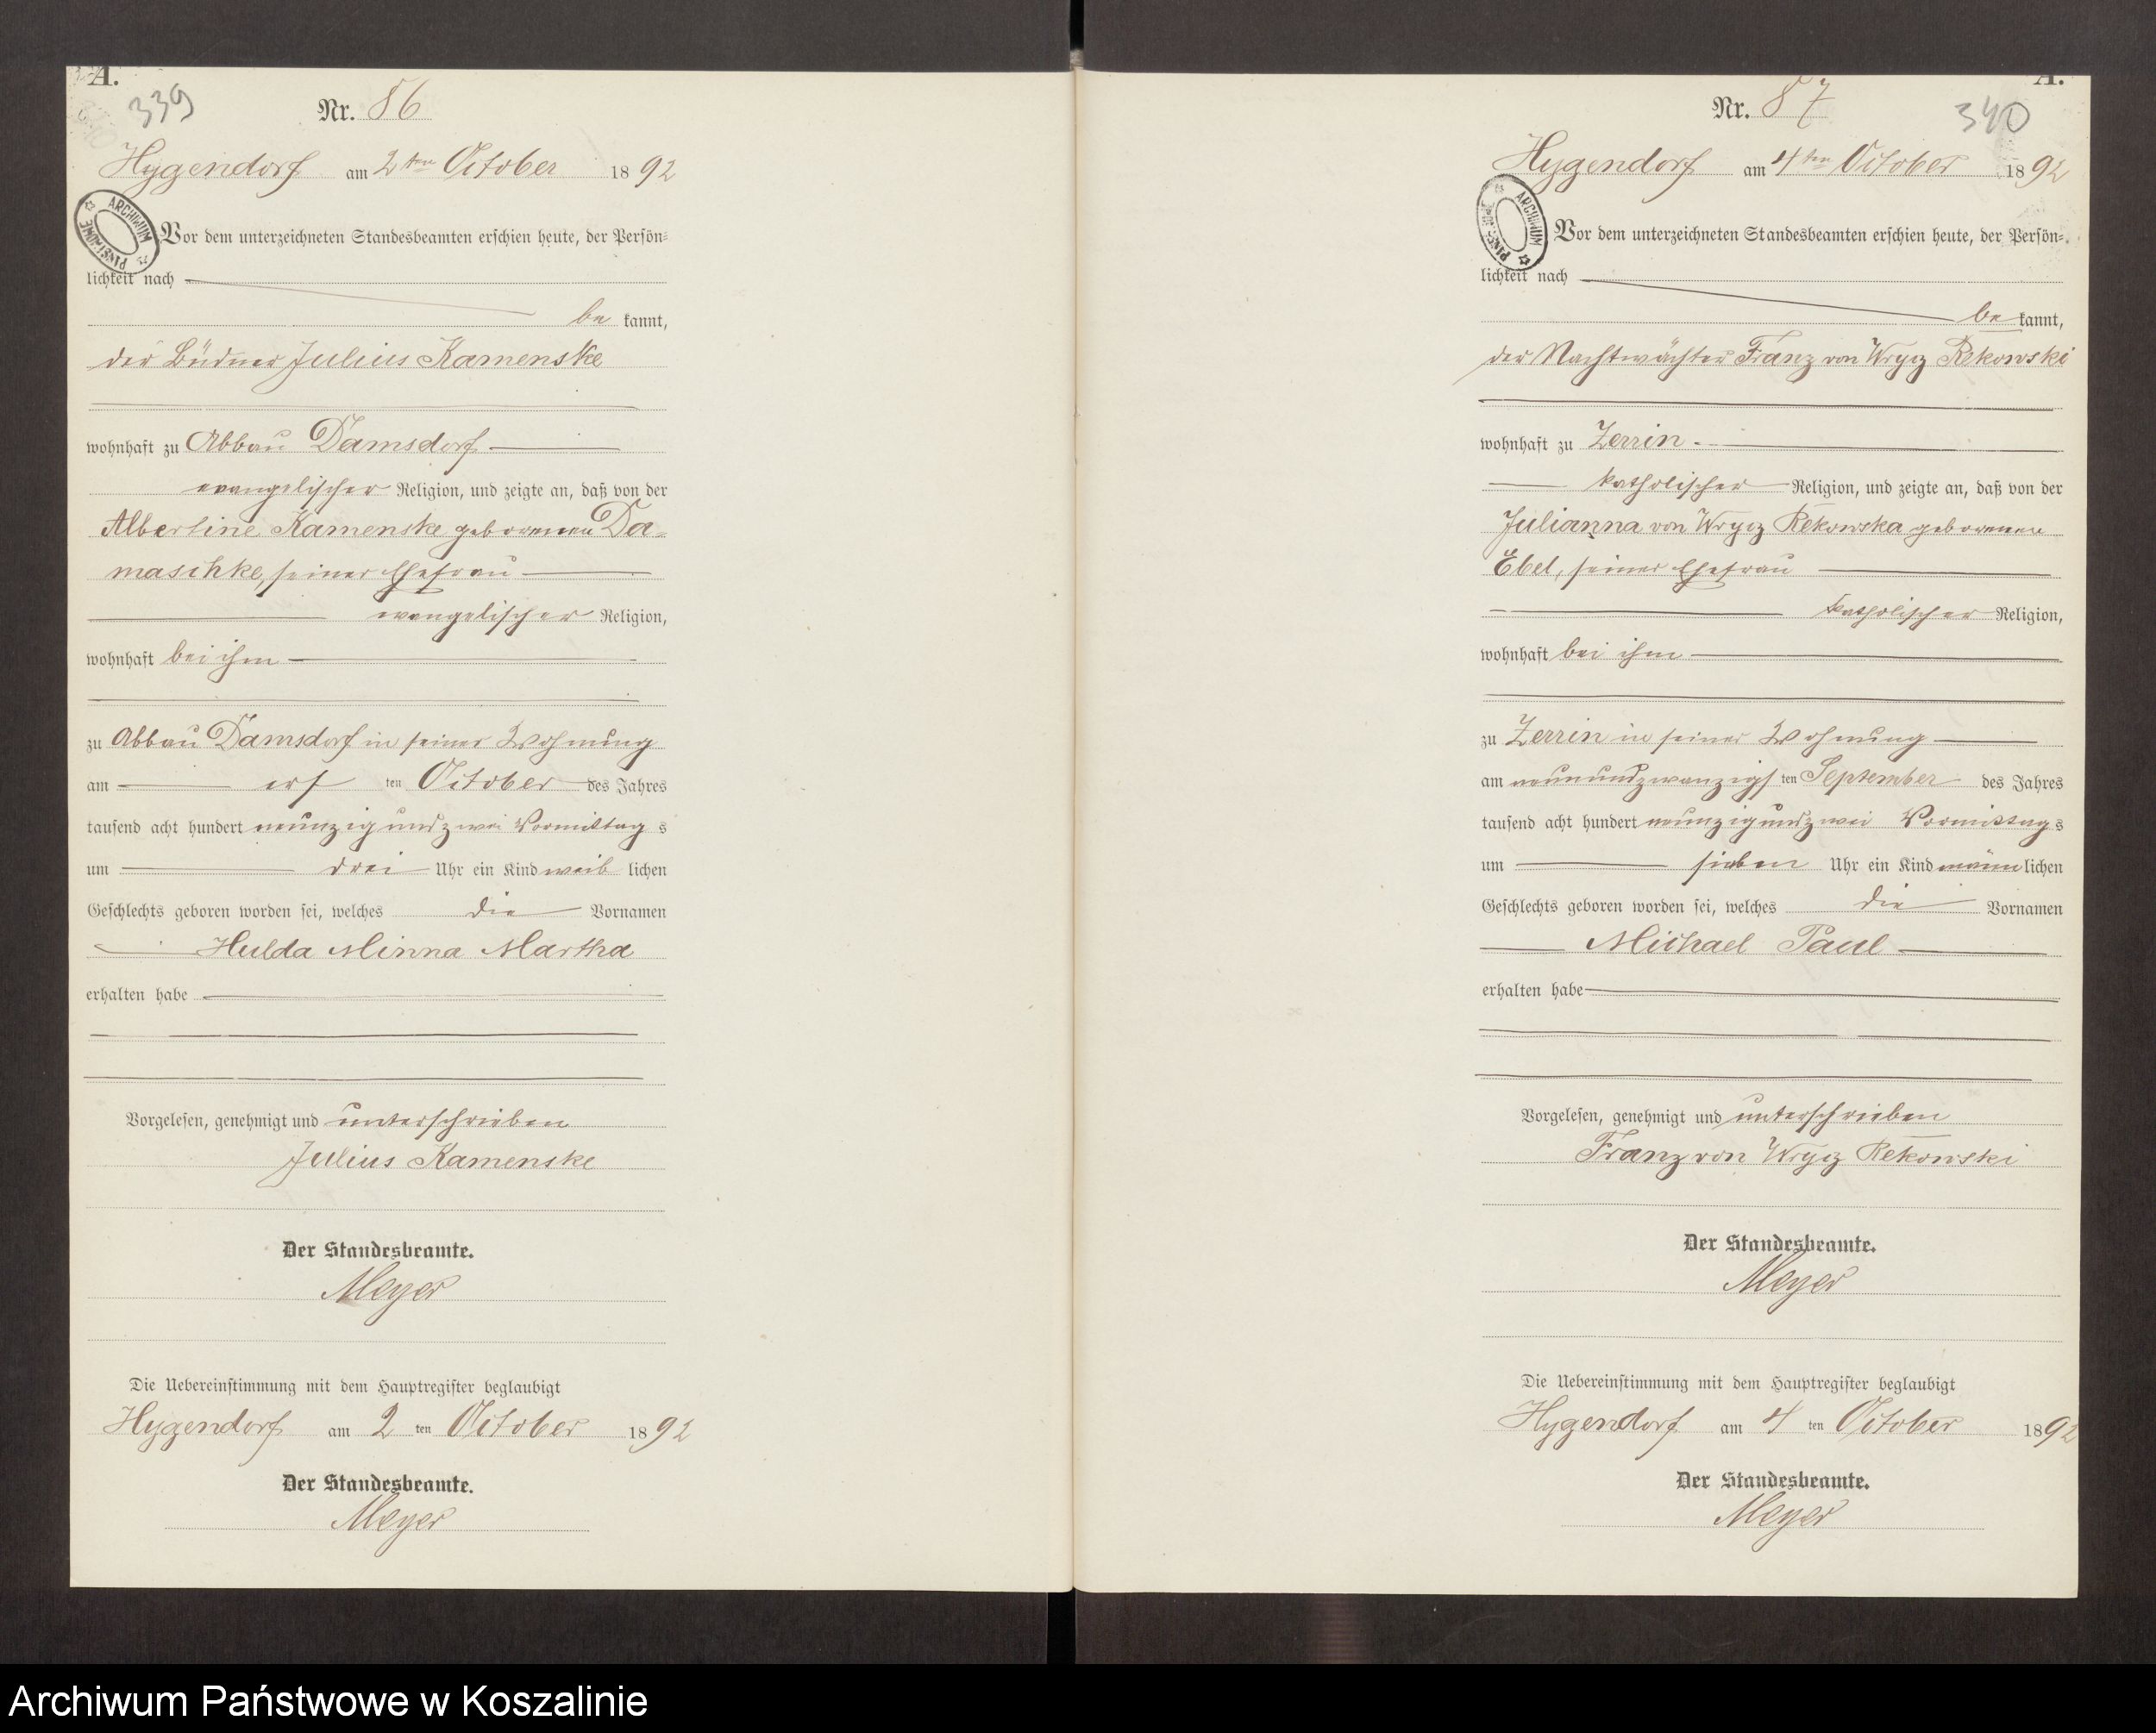 A.
339
Nr. 86
Hygendorf am 2ten October 1892
Vor dem unterzeichneten Standesbeamten erschien heute, der Persön-
lichkeit nach
be kannt,
der Büdner Julius Kamenske
wohnhaft zu Abbau Damsdorf
evangelischer Religion, und zeigte an, daß von der
Albertine Kamenske geborenen Da-
maschke, seiner Ehefrau
evangelischer Religion,
wohnhaft bei ihm
zu Abbau Damsdorf in seiner Wohnung
am ers ten October des Jahres
tausend acht hundert neunzig und zwei Vormittag s
um drei Uhr ein Kind weib lichen
Geschlechts geboren worden sei, welches die Vornamen
Hulda Minna Martha
erhalten habe
Vorgelesen, genehmigt und unterschrieben
Julius Kamenske
Der Standesbeamte.
Meyer
Die Uebereinstimmung mit dem Hauptregister beglaubigt
Hygendorf am 2 ten October 1892
Der Standesbeamte.
Meyer
A.
340
Nr. 87
Hygendorf am 4ten October 1892
Vor dem unterzeichneten Standesbeamten erschien heute, der Persön-
lichkeit nach
be kannt,
der Nachtwächter Franz von Wrycz Rekowski
wohnhaft zu Zerrin
katholischer Religion, und zeigte an, daß von der
Julianna von Wrycz Rekowska geborenen
Ebel, seiner Ehefrau
katholischer Religion,
wohnhaft bei ihm
zu Zerrin in seiner Wohnung
am neunundzwanzigs ten September des Jahres
tausend acht hundert neunzig und zwei Vormittag s
um sieben Uhr ein Kind männ lichen
Geschlechts geboren worden sei, welches die Vornamen
Michael Paul
erhalten habe
Vorgelesen, genehmigt und unterschrieben
Franz von Wrycz Rekowski
Der Standesbeamte.
Meyer
Die Uebereinstimmung mit dem Hauptregister beglaubigt
Hygendorf am 4 ten October 1892
Der Standesbeamte.
Meyer
Archiwum Państwowe w Koszalinie